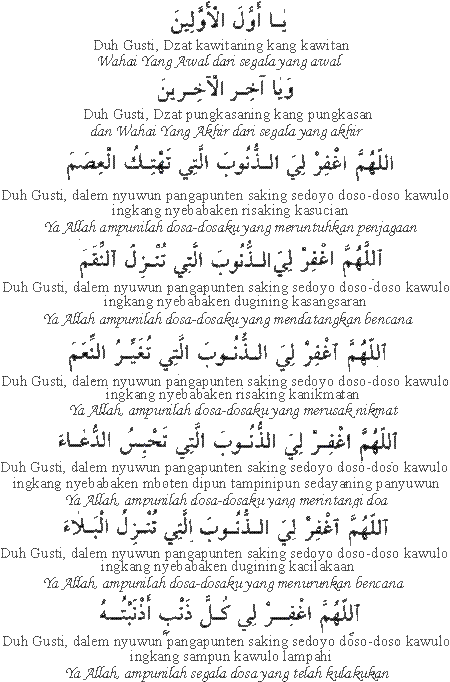 يَا أَوَّلَ الْأَوَّلِينَ
Duh Gusti, Dzat kawitaning kang kawitan
Wahai Yang Awal dari segala yang awal
وَيَا آخِرَ الْآخِرِينَ
Duh Gusti, Dzat pungkasaning kang pungkasan
dan Wahai Yang Akhir dari segala yang akhir
اَللّٰهُمَّ اغْفِرْ لِيَ الذُّنُوبَ الَّتِي تَهْتِكُ الْعِصَمَ
Duh Gusti, dalem nyuwun pangapunten saking sedoyo doso-doso kawulo
ingkang nyebabaken risaking kasucian
Ya Allah ampunilah dosa-dosaku yang meruntuhkan penjagaan
اَللّٰهُمَّ اغْفِرْ لِيَ الذُّنُوبَ الَّتِي تُنْزِلُ النِّقَمَ
Duh Gusti, dalem nyuwun pangapunten saking sedoyo doso-doso kawulo
ingkang nyebabaken dugining kasangsaran
Ya Allah ampunilah dosa-dosaku yang mendatangkan bencana
اَللّٰهُمَّ اغْفِرْ لِيَ الذُّنُوبَ الَّتِي تُغَيِّرُ النِّعَمَ
Duh Gusti, dalem nyuwun pangapunten saking sedoyo doso-doso kawulo
ingkang nyebabaken risaking kanikmatan
Ya Allah, ampunilah dosa-dosaku yang merusak nikmat
اَللّٰهُمَّ اغْفِرْ لِيَ الذُّنُوبَ الَّتِي تَحْبِسُ الدُّعَاءَ
Duh Gusti, dalem nyuwun pangapunten saking sedoyo doso-doso kawulo
ingkang nyebabaken mboten dipun tampinipun sedayaning panyuwun
Ya Allah, ampunilah dosa-dosaku yang merintangi doa
اَللّٰهُمَّ اغْفِرْ لِيَ الذُّنُوبَ الَّتِي تُنْزِلُ الْبَلَاءَ
Duh Gusti, dalem nyuwun pangapunten saking sedoyo doso-doso kawulo
ingkang nyebabaken dugining kacilakaan
Ya Allah, ampunilah dosa-dosaku yang menurunkan bencana
اَللّٰهُمَّ اغْفِرْ لِي كُلَّ ذَنْبٍ أَذْنَبْتُهُ
Duh Gusti, dalem nyuwun pangapunten saking sedoyo doso-doso kawulo
ingkang sampun kawulo lampahi
Ya Allah, ampunilah segala dosa yang telah kulakukan